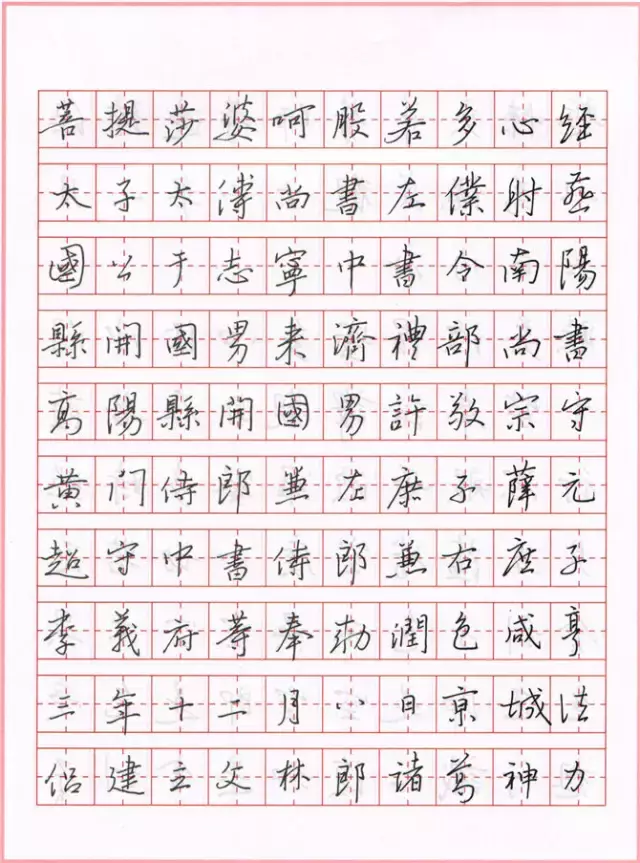 菩提莎婆呵般若多心經
太子太傅尚書左僕射燕
國公于志寧中書令南陽
縣開國男来濟禮部尚書
高陽縣開國男許敬宗守
黄门侍郎兼左庶子薛元
超守中書侍郎兼右庶子
李義府等奉勅潤色咸亨
三年十二月八日京城法
侣建立文林郎諸葛神力